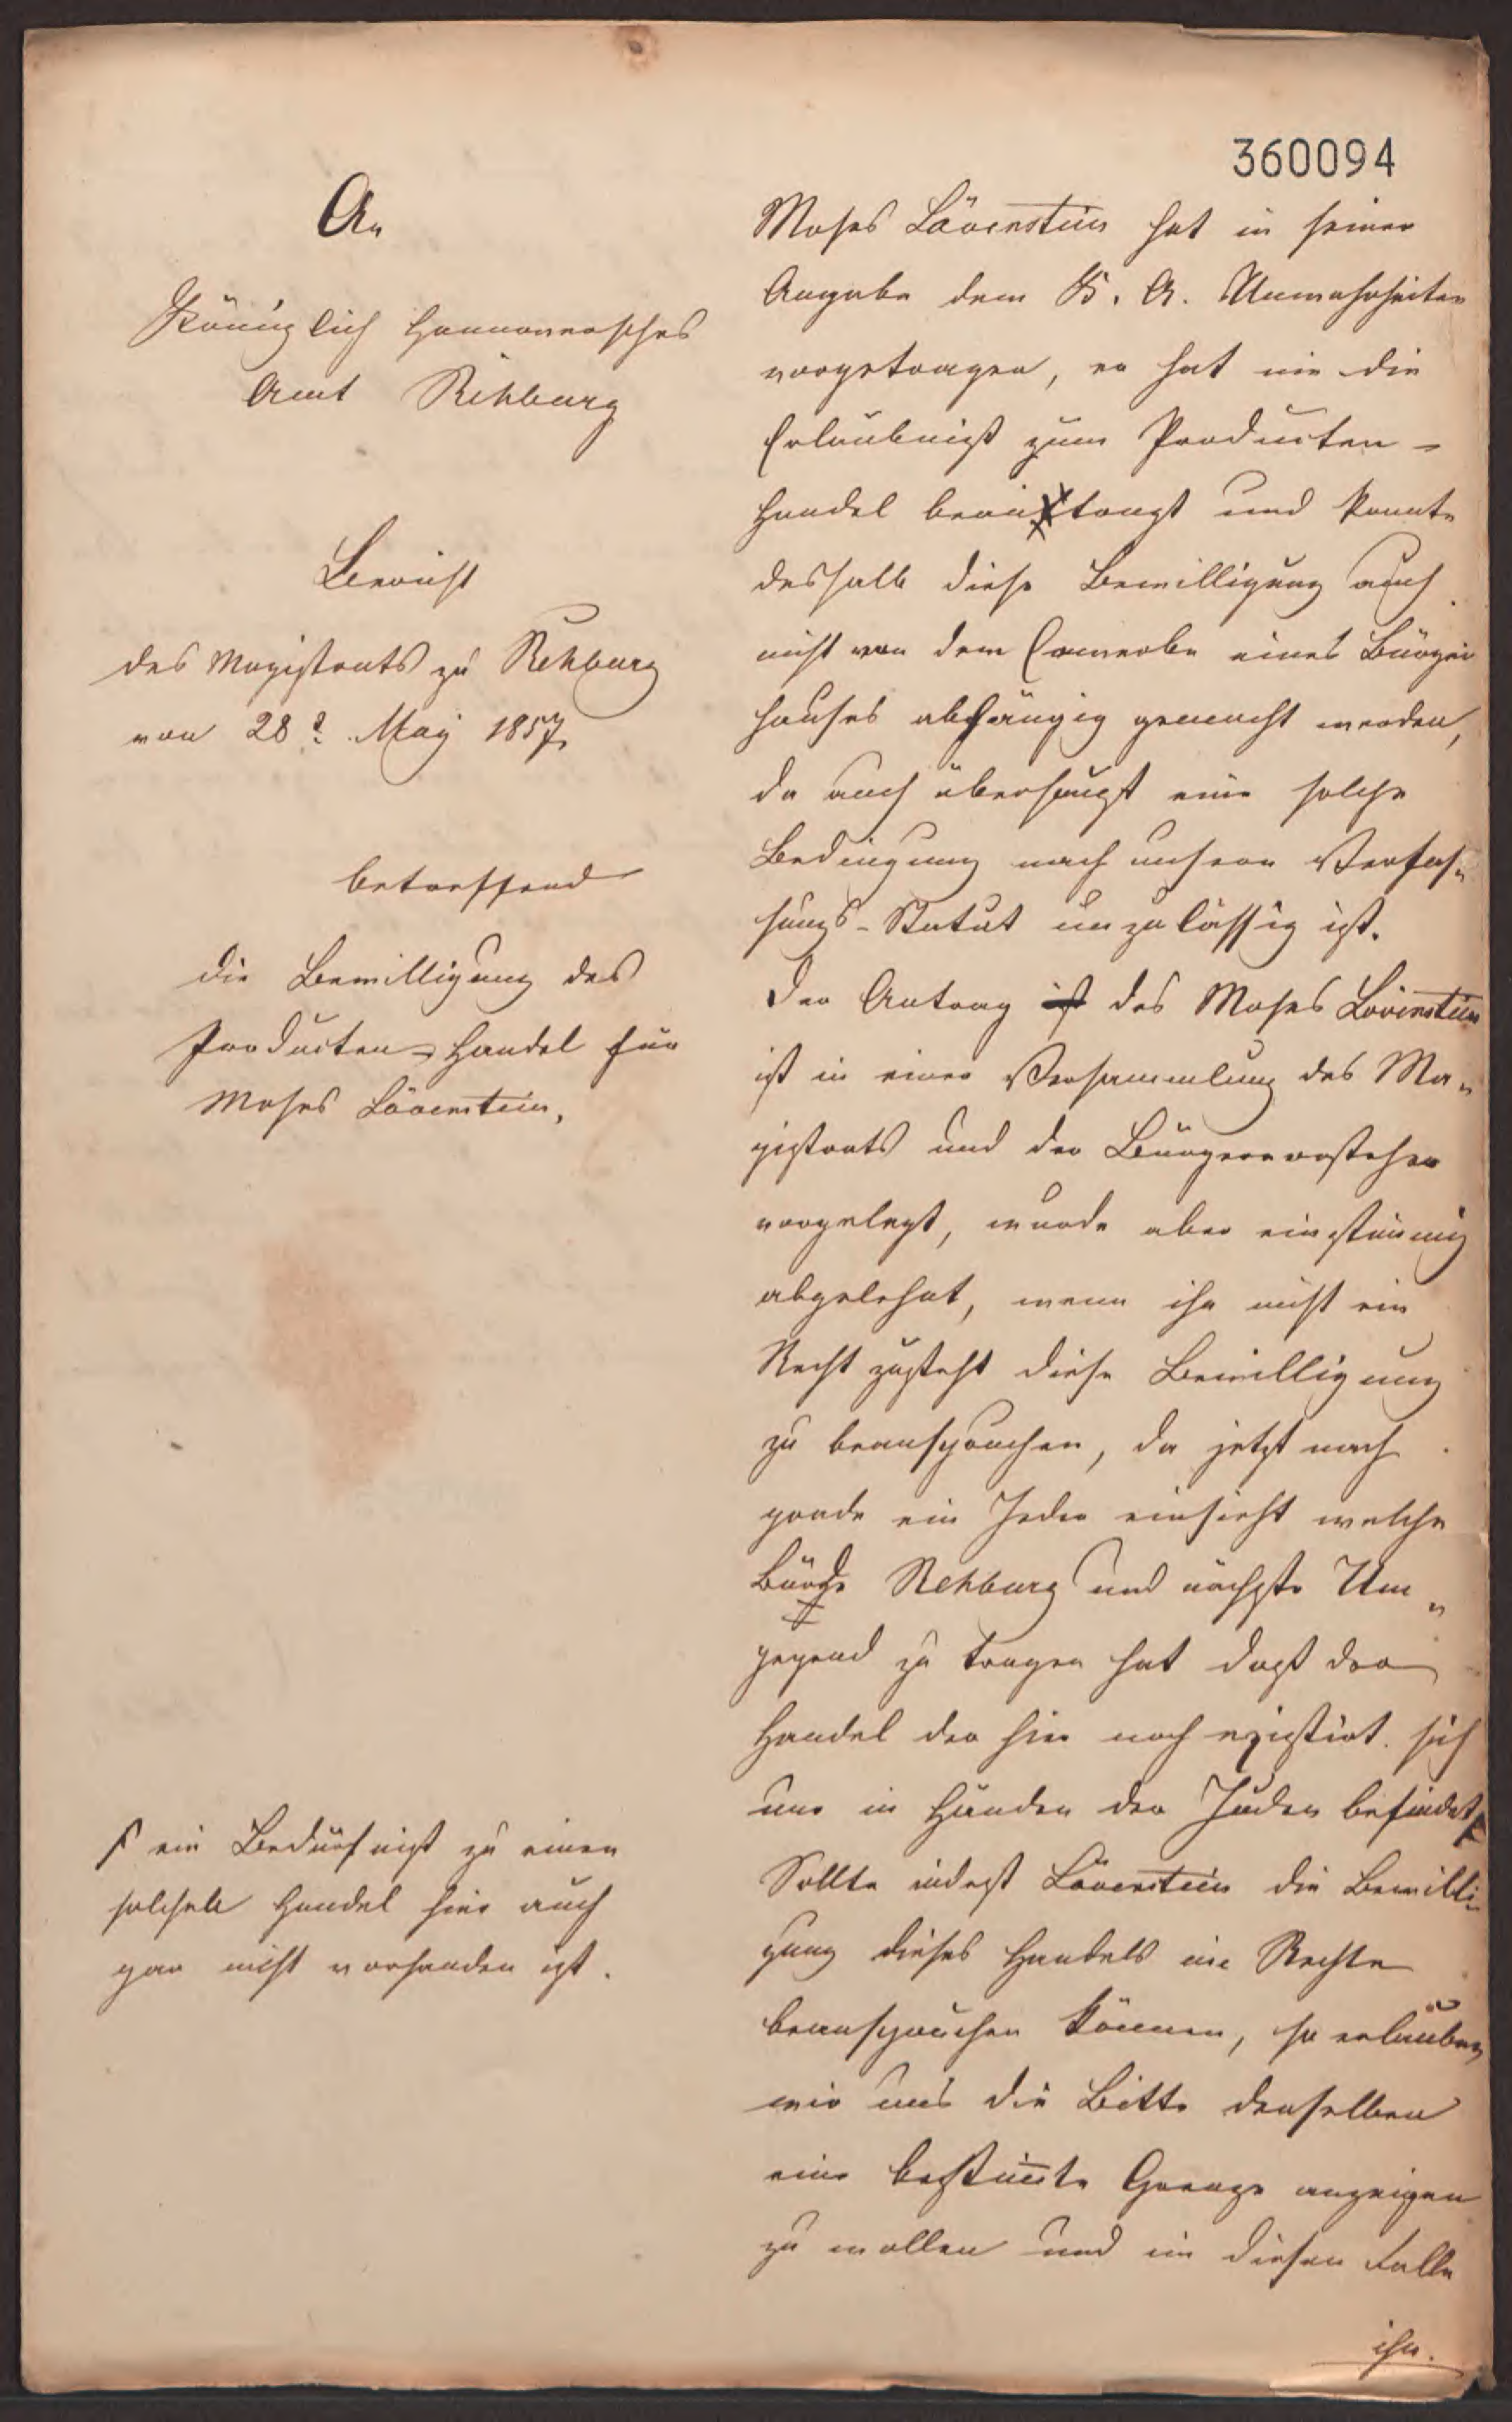 360094
An
Königlich Hannoversches
Amt Rehburg
Bericht
des Magistrats zu Rehburg
von 28t. May 1857
betreffend
die Bewilligung des
Producten-Handel für
Moses Lövenstein.
Moses Lövenstein hat in seiner
Angabe dem K. A. Unwahrheiten
vorgetragen, er hat nie die
Erlaubniß zum Producten-
Handel beantragt und konnte
deshalb diese Bewilligung auch
nicht von dem Erwerbe eines Bürger
hauses abhängig gemacht werden,
da auch überhaupt eine solche
Bedingung nach unsern Verfas-
sungs-Statut unzulässig ist.
Der Antrag ist des Moses Lövenstein
ist in einer Versammlung des Ma-
gistrats und der Bürgervorsteher
vorgelegt, wurde aber einstimmig
abgelehnt, wenn ihn nicht ein
Recht zusteht diese Bewilligung
zu beanspruchen, da jetzt nach
grade ein Jeder einsieht welche
Bürde Rehburg und nächste Um-
gegend zu tragen hat daß der
Handel der hier noch existirt sich
nur in Händen der Juden befindet
ein Bedürfniß zu einen
solchen Handel hier auch
gar nicht vorhanden ist.
Sollte indeß Lövenstein die Bewilli-
gung dieses Handels im Rechte
beanspruchen können, so erlauben
wir uns die Bitte denselben
eine bestimmte Grenze anzeigen
zu wollen und in diesen Falle
ihn.